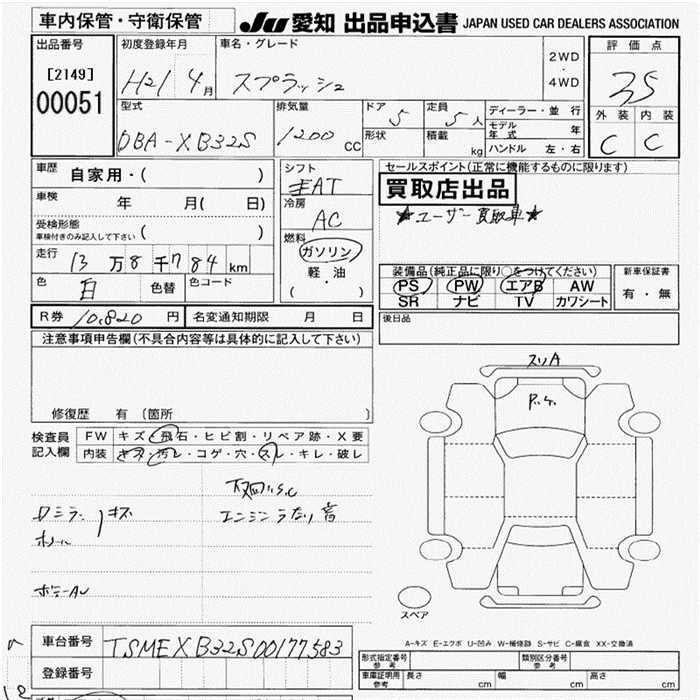 車内保管・守衛保管
JU 愛知 出品申込書 JAPAN USED CAR DEALERS ASSOCIATION
出品番号 初度登録年月 車名・グレード 2WD ・ 4WD 評価点
[2149] 00051 H21 4月 スプラッシュ 3.5
型式 排気量 ドア 5 定員 5人 ディーラー・並行 外装 内装
DBA-XB32S 1200 CC 形状 積載 kg モデル年式 年 C C
ハンドル 左・右
車歴 自家用・( ) シフト AT セールスポイント(正常に機能するものに限ります)
買取店出品
車検 年 月( 日) 冷房 AC ★ユーザー買取車★
受検形態 ( )
車検付きのみ記入して下さい
燃料 ガソリン 軽・油 ( )
走行 13万8千784km
装備品(純正品に限り○をつけてください) 新車保証書
色 白 色替 色コード PS PW エアB AW 有・無
SR ナビ TV カワシート
R券 10,820 円 名変通知期限 月 日 後日品
注意事項申告欄(不具合内容等は具体的に記入して下さい)
スリA
P.ケ.
修復歴 有 (箇所 )
検査員 FW キズ・飛石・ヒビ割・リペア跡・X要
記入欄 内装 キズ・汚レ・コゲ・穴・スレ・キレ・破レ
下回りS.C
ロミラー キズ エンジンうなり音
ホイール
ボデーAU
スペア
車台番号 TSMEXB32S00177583
A-キズ E-エクボ U-凹み W-補修跡 S-サビ C-腐食 XX-交換済
登録番号
形式指定番号 参考 類別区分番号 参考
車庫証明用 参考 長さ cm 幅 cm 高さ cm